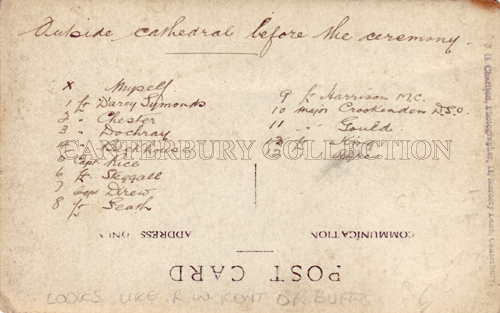 Outside cathedral before the ceremony.
x Myself
1 Lt Darcy Symonds
2 " Chester
3 " Dochray
4
5 Capt Rice
6 Lt Steggall
7 Capt Drew
8 Lt Seath
9 Lt Harrison M.C.
10 Major Crookenden D.S.O.
11 " Gould
12 Lt King
13
CANTERBURY COLLECTION
ADDRESS ONLY
COMMUNICATION
POST CARD
LOOKS LIKE R.W. KENT OR BUFFS